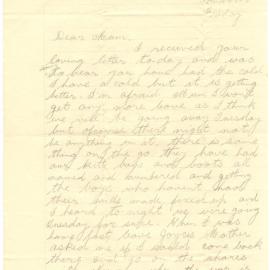 Dear Mam.
I received your
loving letter today and was
to hear you have had the cold
I have a cold but it is getting
better. I'm afraid Mum I won't
get any more leave as I think
we will be going away Tuesday
but of course there might not
be anything in it, there is some
thing on the go they have had
our kitt bags and boots all
named and numbered and getting
the boys who havent have
their books made fixed up and
I heard to night we were going
Tuesday for sure. When I was
long past leave Joyces Mother
asked me if I would come back
there and go on the shares